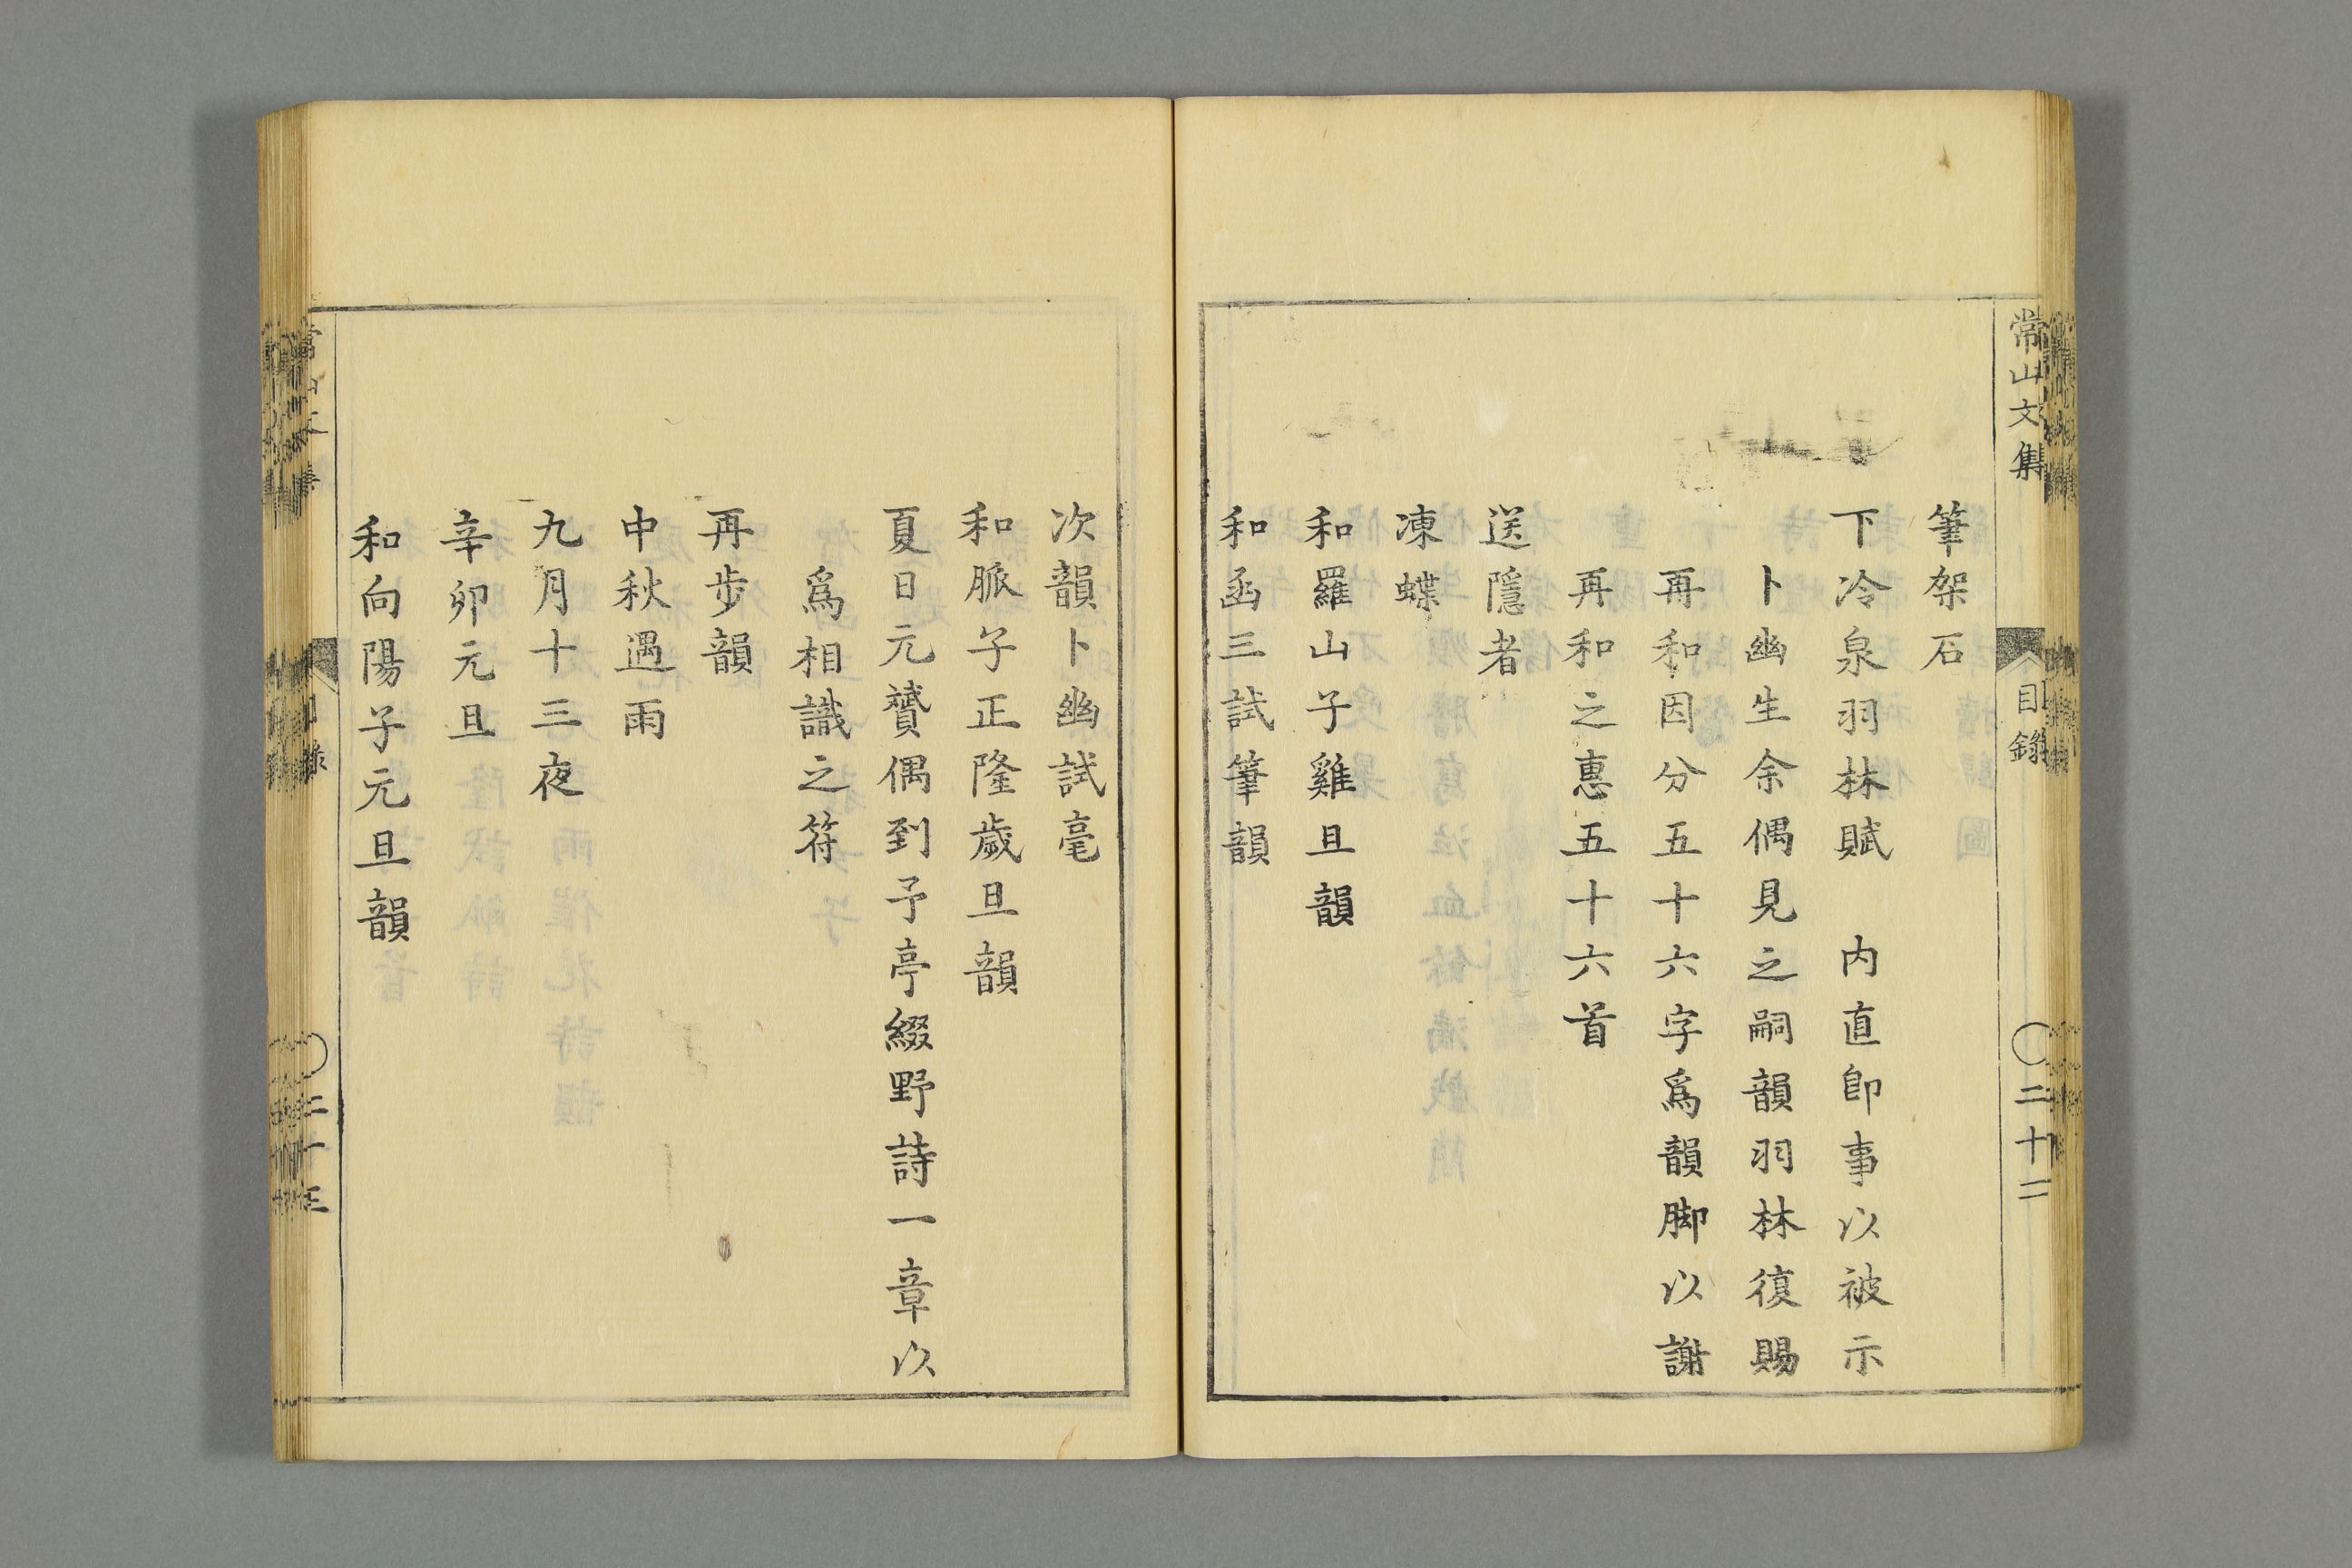 常山文集 目錄 〇二十二
筆架石
下冷泉羽林賦　内直即事以被示
卜幽生余偶見之嗣韻羽林復賜
再和因分五十六字爲韻脚以謝
再和之惠五十六首
送隱者
凍蝶
和羅山子雞旦韻
和函三試筆韻
次韻卜幽試毫
和脈子正隆歲旦韻
夏日元贇偶到予亭綴野詩一章以
爲相識之符
再步韻
中秋遇雨
九月十三夜
辛卯元旦
和向陽子元旦韻